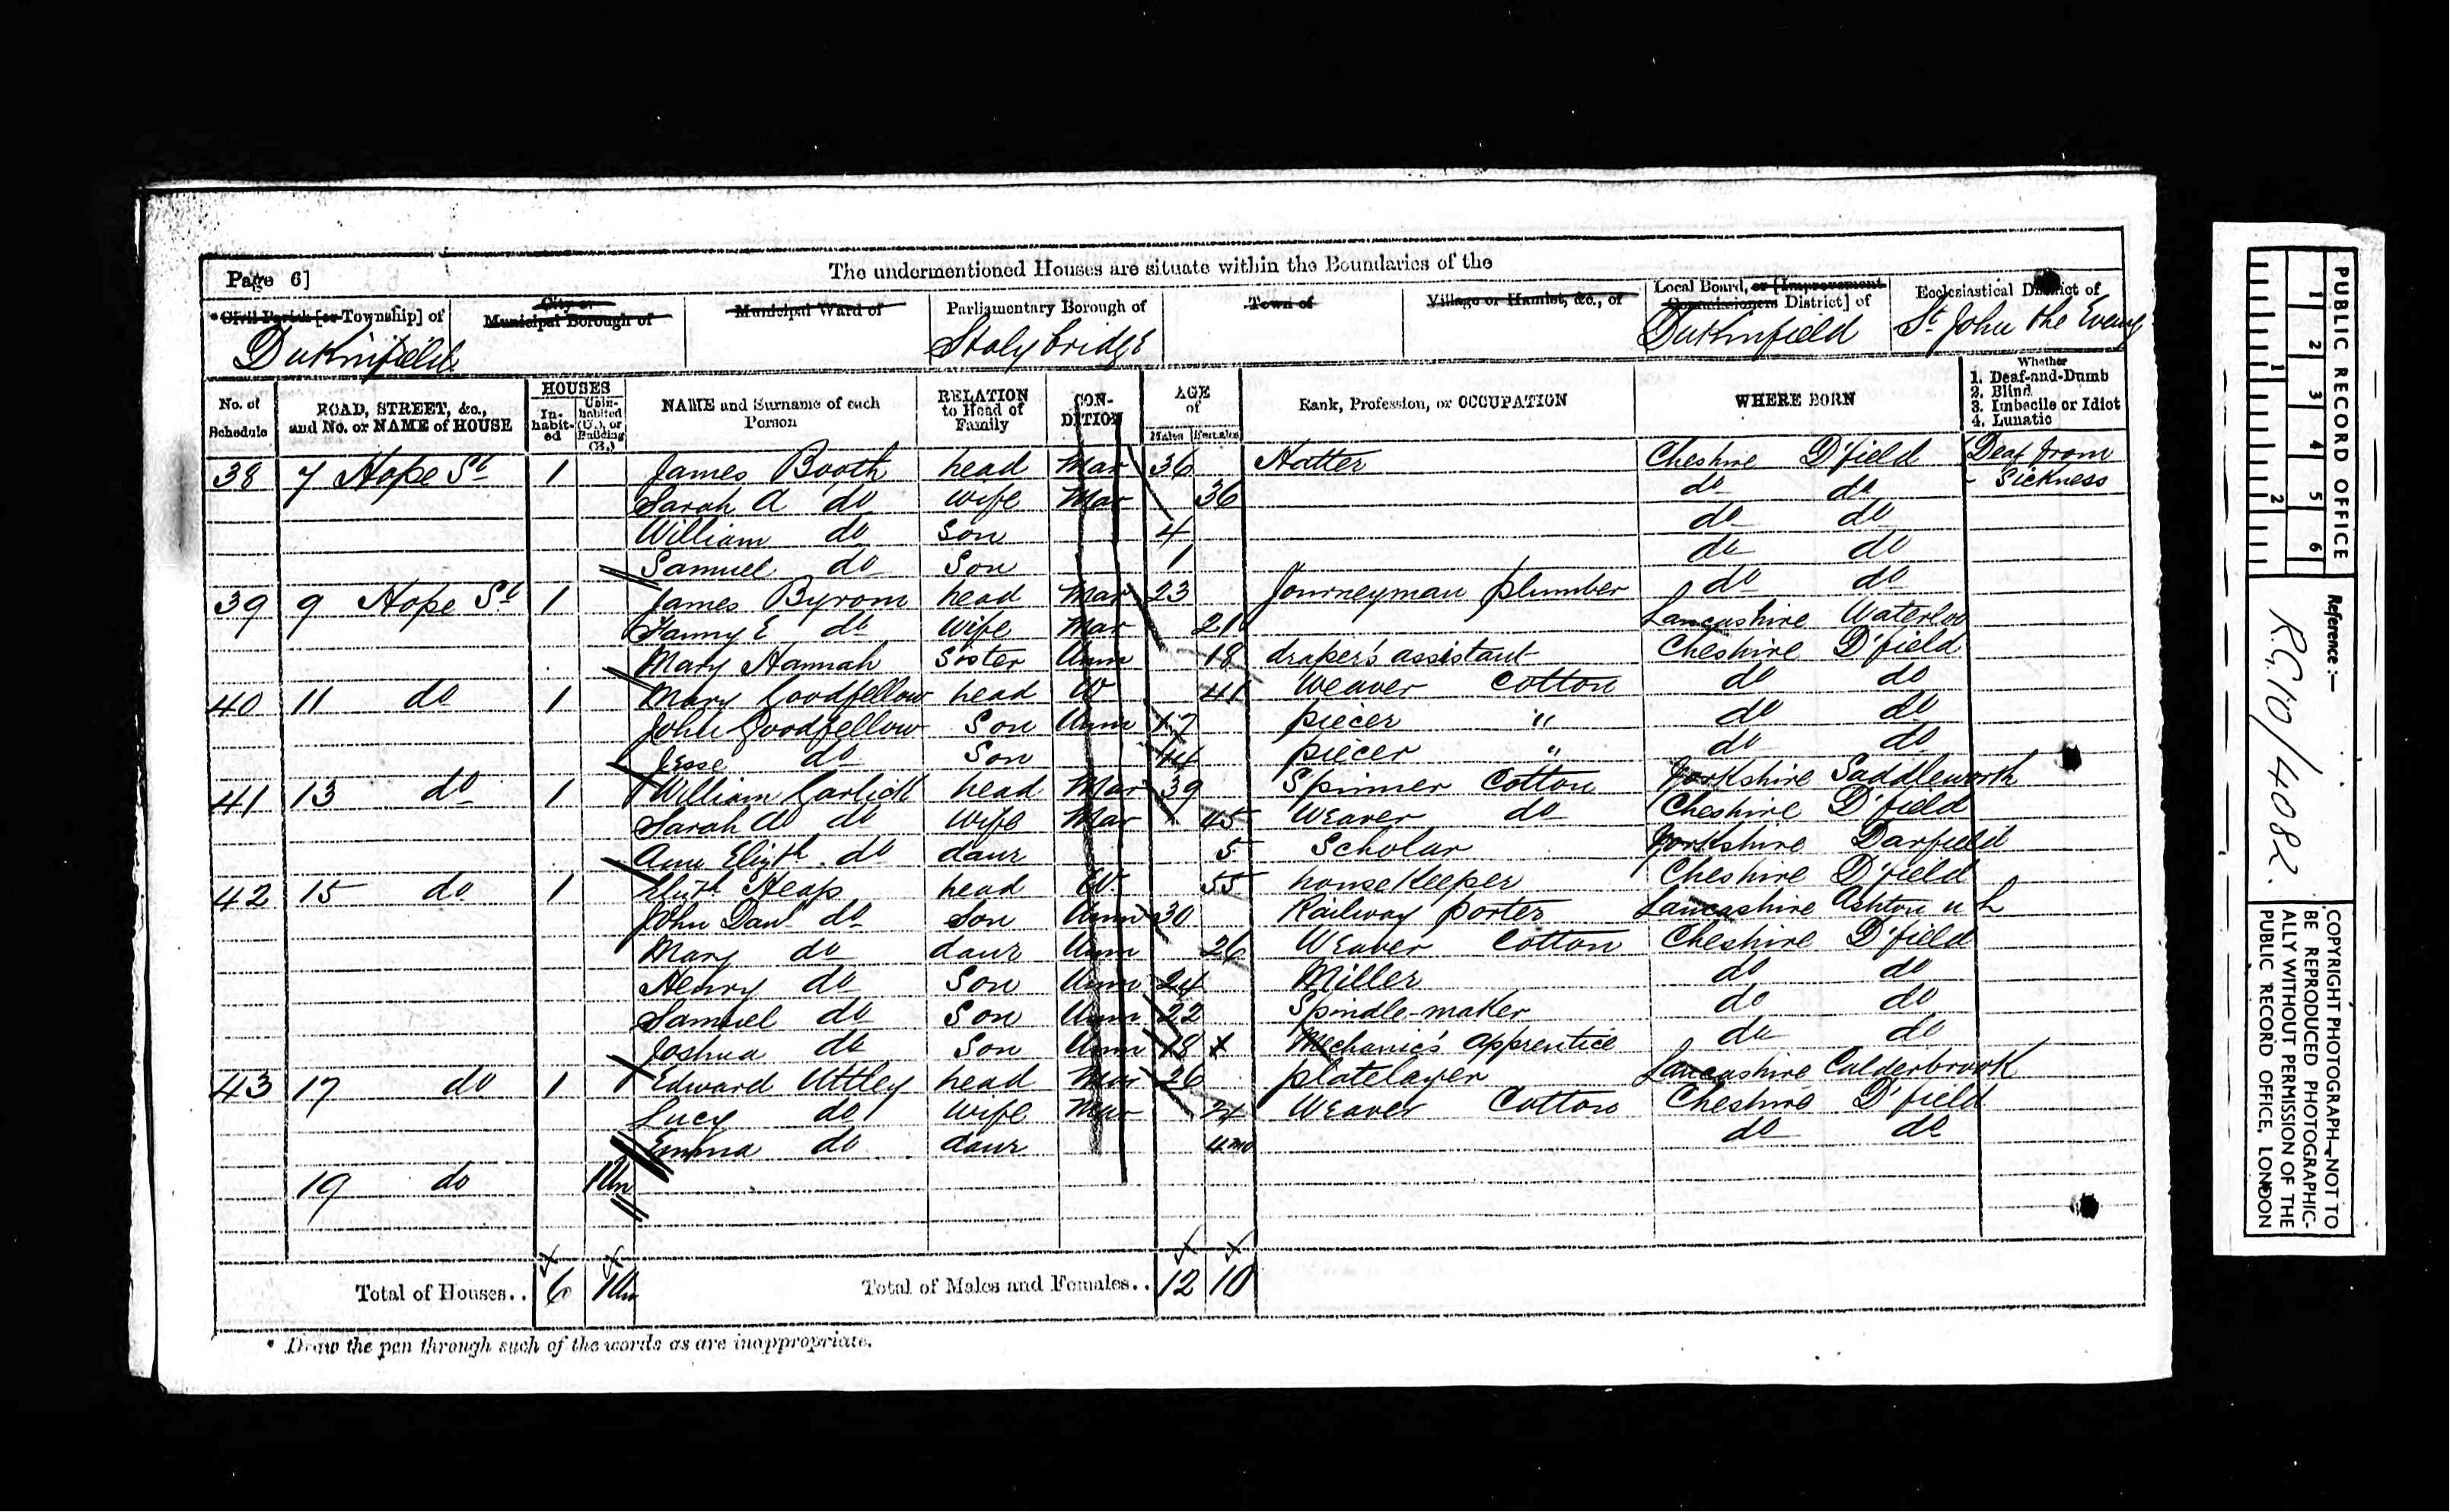 Page 6]
The undermentioned Houses are situate within the Boundaries of the
* Civil Parish [or Township] of
City or Municipal Borough of
Municipal Ward of
Parliamentary Borough of
Town of
Village or Hamlet, &c., of
Local Board, or [Improvement Commissioners District] of
Ecclesiastical District of
Dukinfield
Stalybridge
Dukinfield
St John the Evang
No. of Schedule
ROAD, STREET, &c., and No. or NAME of HOUSE
HOUSES
In-habit-ed
Unin-habited (U.), or Building (B.)
NAME and Surname of each Person
RELATION to Head of Family
CON-DITION
AGE of
Males
Females
Rank, Profession, or OCCUPATION
WHERE BORN
Whether
1. Deaf-and-Dumb
2. Blind
3. Imbecile or Idiot
4. Lunatic
38 7 Hope St 1 James Booth head Mar 36 Hatter Cheshire D'field Deaf from Sickness
Sarah A do wife Mar 36 do do
William do Son 4 do do
Samuel do Son 1 do do
39 9 Hope St 1 James Byrom head Mar 23 Journeyman plumber do do
Fanny E do wife Mar 21 Lancashire Waterloo
Mary Hannah Sister Unm 18 draper's assistant Cheshire D'field
40 11 do 1 Mary Goodfellow head W 41 Weaver Cotton do do
John Goodfellow Son Unm 17 piecer " do do
Jesse do Son 14 piecer " do do
41 13 do 1 William Garlick head Mar 39 Spinner Cotton Yorkshire Saddleworth
Sarah A do wife Mar 45 Weaver do Cheshire D'field
Ann Elizth do daur 5 Scholar Yorkshire Darfield
42 15 do 1 Elizth Heap head W. 55 housekeeper Cheshire D'field
John Danl do Son Unm 30 Railway porter Lancashire Ashton u L
Mary do daur Unm 26 Weaver Cotton Cheshire D'field
Henry do Son Unm 24 Miller do do
Samuel do Son Unm 22 Spindle-maker do do
Joshua do Son Unm 18 x Mechanic's apprentice do do
43 17 do 1 Edward Uttley head Mar 26 platelayer Lancashire Calderbrook
Lucy do wife Mar Weaver Cotton Cheshire D'field
Emma do daur 4mo do do
19 do 1Un
Total of Houses.. 6 1Un Total of Males and Females.. 12 10
* Draw the pen through such of the words as are inappropriate.
PUBLIC RECORD OFFICE
1 2 3 4 5 6
1 2
Reference:—
RG 10/4082.
COPYRIGHT PHOTOGRAPH—NOT TO
BE REPRODUCED PHOTOGRAPHIC-
ALLY WITHOUT PERMISSION OF THE
PUBLIC RECORD OFFICE, LONDON